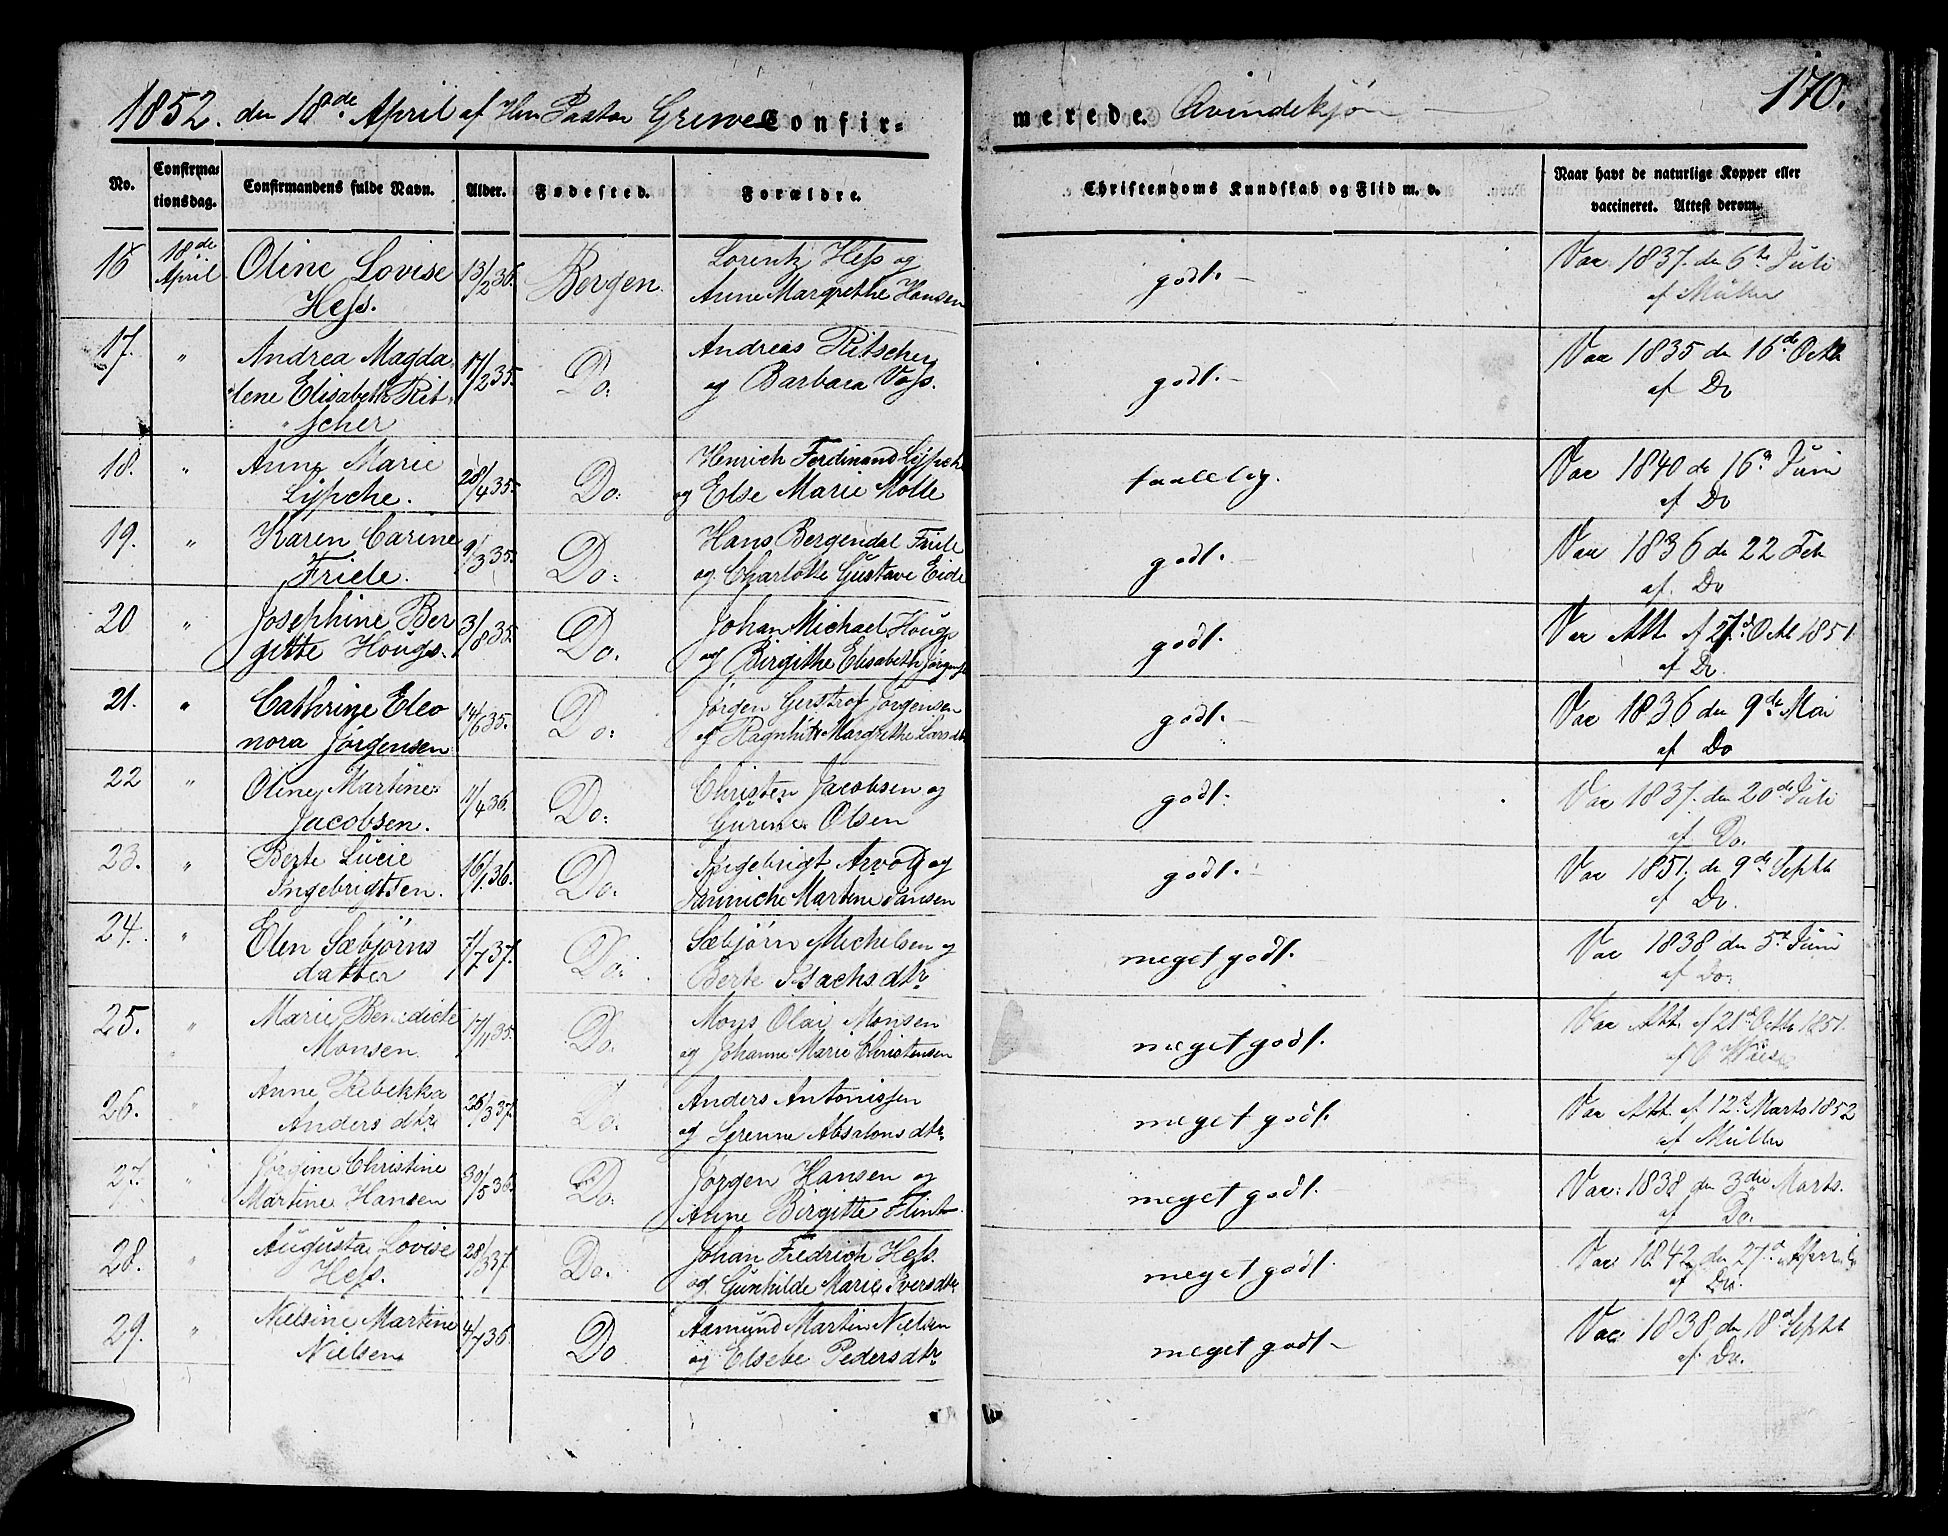 1852. den 18de April af Herr Pastor Grewe Confir-
merede. Qvindekjøn
170.
No.
Confirma-
tionsdag.
Confirmandens fulde Navn.
Alder.
Fødested.
Forældre.
Christendoms Kundskab og Flid m. v.
Naar havt de naturlige Kopper eller
vaccineret. Attest derom.
16 18de April Oline Lovise 13/2 36. Bergen. Lorentz Hess og godt. Vac 1837. den 6te Juli
Hess. Anne Margrethe Hansen af Müller
17. " Andrea Magda- 17/2 35. Do: Andreas Ritscher godt. Vac 1835 den 16de Octb
lene Elisabeth Rit- og Barbara Voss. af Do
scher
18. " Anne Marie 28/4 35. Do: Henrich Ferdinand Lÿpche taalelig. Vac 1840 de 16 Juni
Lÿpche. og Else Marie Molle af Do
19. " Karen Carine 9/3 35. Do: Hans Bergendal Friele godt. Vac 1836 de 22 Feb
Friele. og Charlotte Gustave Eide af. Do
20 " Josephine Ber 3/8 35. Do: Johan Michael Hougs godt. Vac Att af 27d Octb 1851.
gitte Hougs. og Birgithe Elisabeth Jørgens af Do.
21. " Cathrine Eleo 14/6 35. Do: Jørgen Gerstrof Jørgensen godt. Vac 1836 den 9de Mai
nora Jørgensen og Ragnhild Margrethe Larsdtr af Do
22 " Oline Martine 11/4 36. Do: Christen Jacobsen og godt. Vac 1837. den 20de Juli
Jacobsen. Gurine Olsen af Do.
23. " Berte Lucie 16/1 36. Do: Ingebrigt Arvog godt. Vac 1851. de 9de Septb
Ingebrigtsen. Janniche Martine Jansen af Do.
24. " Elen Sæbjørns 7/7 37. Do: Sæbjørn Michelsen og meget godt. Vac 1838 den 5t Juni
datter Berte Isachs dtr af Do:
25. " Marie Benedicte 17/11 35. Do: Mons Olai Monsen meget godt. Vac Att. af 21d Octb 1851.
Monsen. og Johanne Marie Christensen af O Wiese
26. " Anne Rebekka 26/3 37. Do: Anders Antonissen meget godt. Vac Att. af 12t Marts 1852
Anders dtr og Serenne Absalons dtr. af Müller
27. " Jørgine Christine 30/5 36. Do. Jørgen Hansen og meget godt. Vac: 1838 den 3die Marts.
Martine Hansen Anne Birgitte Flint af Do.
28. " Augusta Lovise 28/3 37. Do. Johan Fredrich Hess. meget godt. Vac 1842 den 27d April
Hess. og Gunhilde Marie Iversdtr af Do.
29. " Nielsine Martine 4/7 36 Do Aamund Martin Nielsen meget godt Vac 1838 den 18d Septb
Nielsen og Elsebe Pedersdtr. af Do.